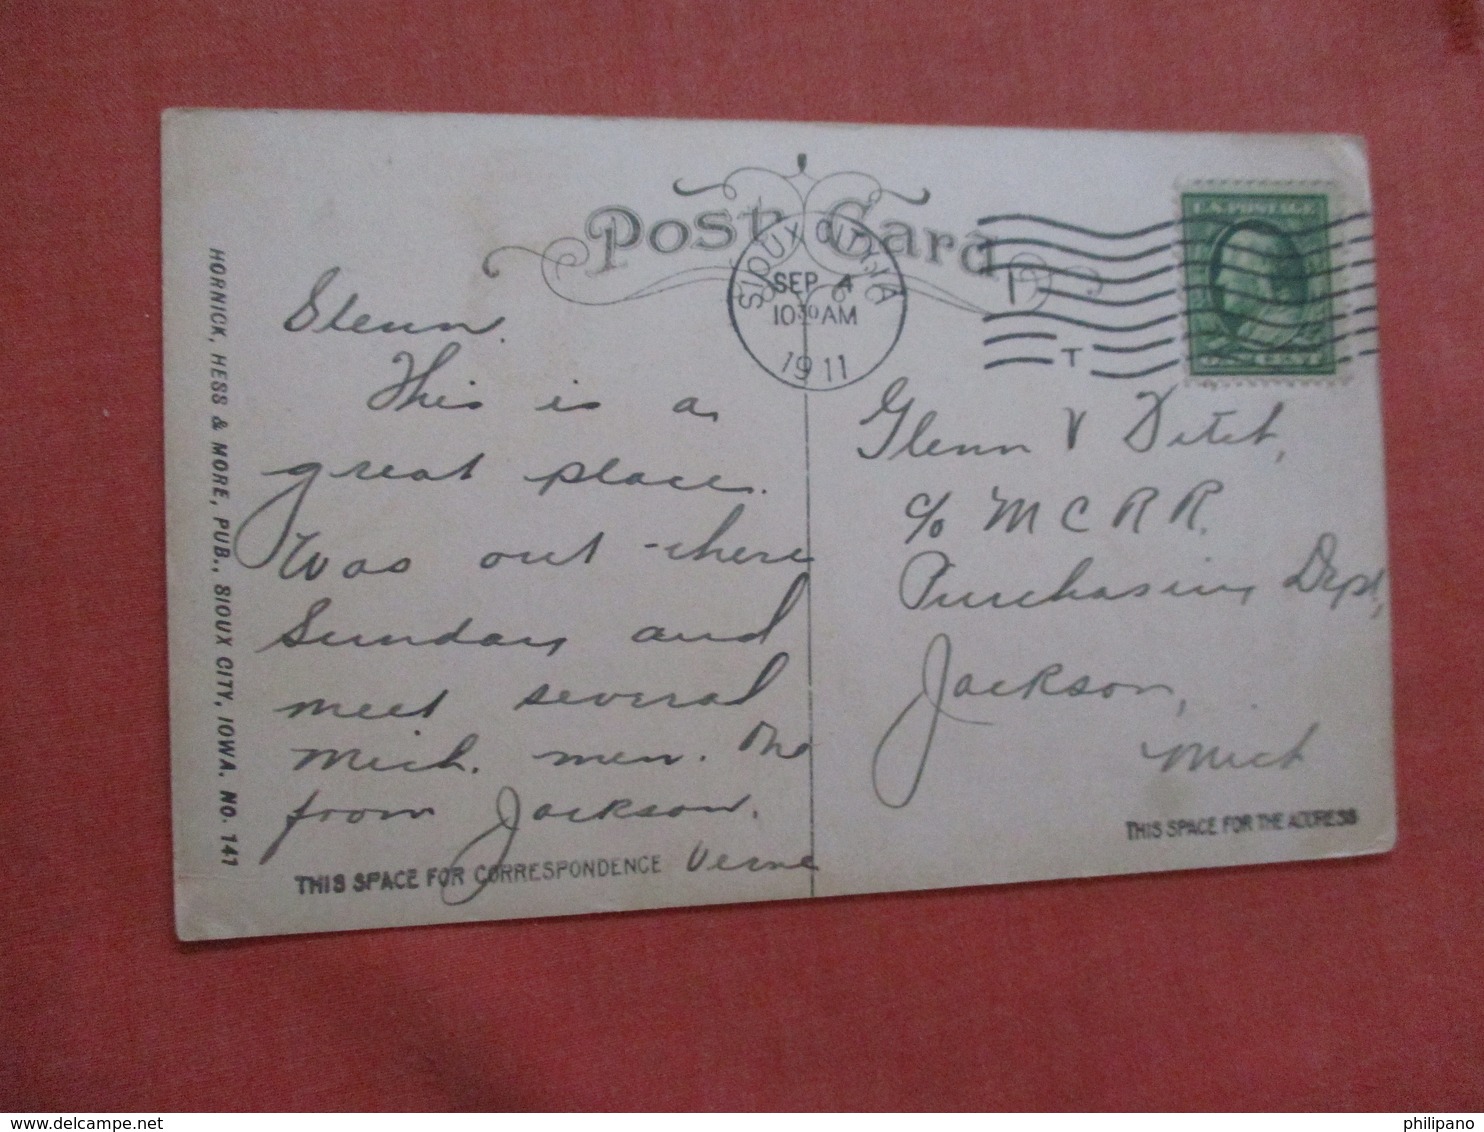 Post Card
SIOUX CITY, IA
SEP 4
10 30 AM
1911
T
U.S. POSTAGE
ONE CENT
Glenn.
This is a
great place.
Was out there
Sunday and
meet several
Mich. men. One
from Jackson.
Verne
THIS SPACE FOR CORRESPONDENCE
Glenn V Ditch,
c/o M C R R.
Purchasing Dept,
Jackson,
Mich
THIS SPACE FOR THE ADDRESS
HORNICK, HESS & MORE, PUB., SIOUX CITY, IOWA. NO. 141
philipano